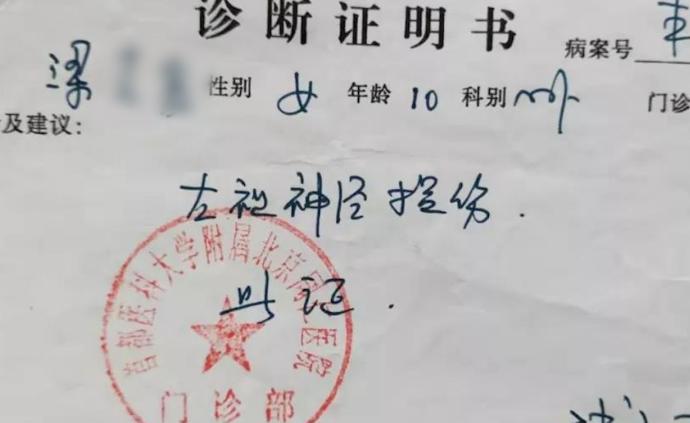 诊断证明书
病案号
梁 性别 女 年龄 10 科别 门诊
及建议:
左 神经损伤.
首都医科大学附属北京同仁医院
此证.
门诊部